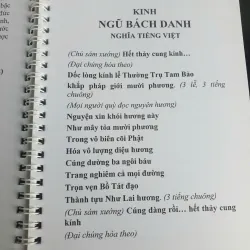 KINH
NGŨ BÁCH DANH
NGHĨA TIẾNG VIỆT
(Chủ sám xướng) Hết thảy cung kính…
(Đại chúng hòa theo)
Dốc lòng kính lễ Thường Trụ Tam Bảo
khắp pháp giới mười phương. (3 lễ, 3 tiếng
chuông)
(Mọi người quỳ đọc nguyện hương)
Nguyện xin khói hương này
Như mây tỏa mười phương
Trong vô biên cõi Phật
Hóa vô lượng diệu hương
Cúng dường ba ngôi báu
Trang nghiêm cả mọi đường
Trọn vẹn Bồ Tát đạo
Thành tựu Như Lai hương. (3 tiếng chuông)
(Chủ sám xướng) Cúng dâng rồi… hết thảy cung
kính
(Đại chúng hòa theo)